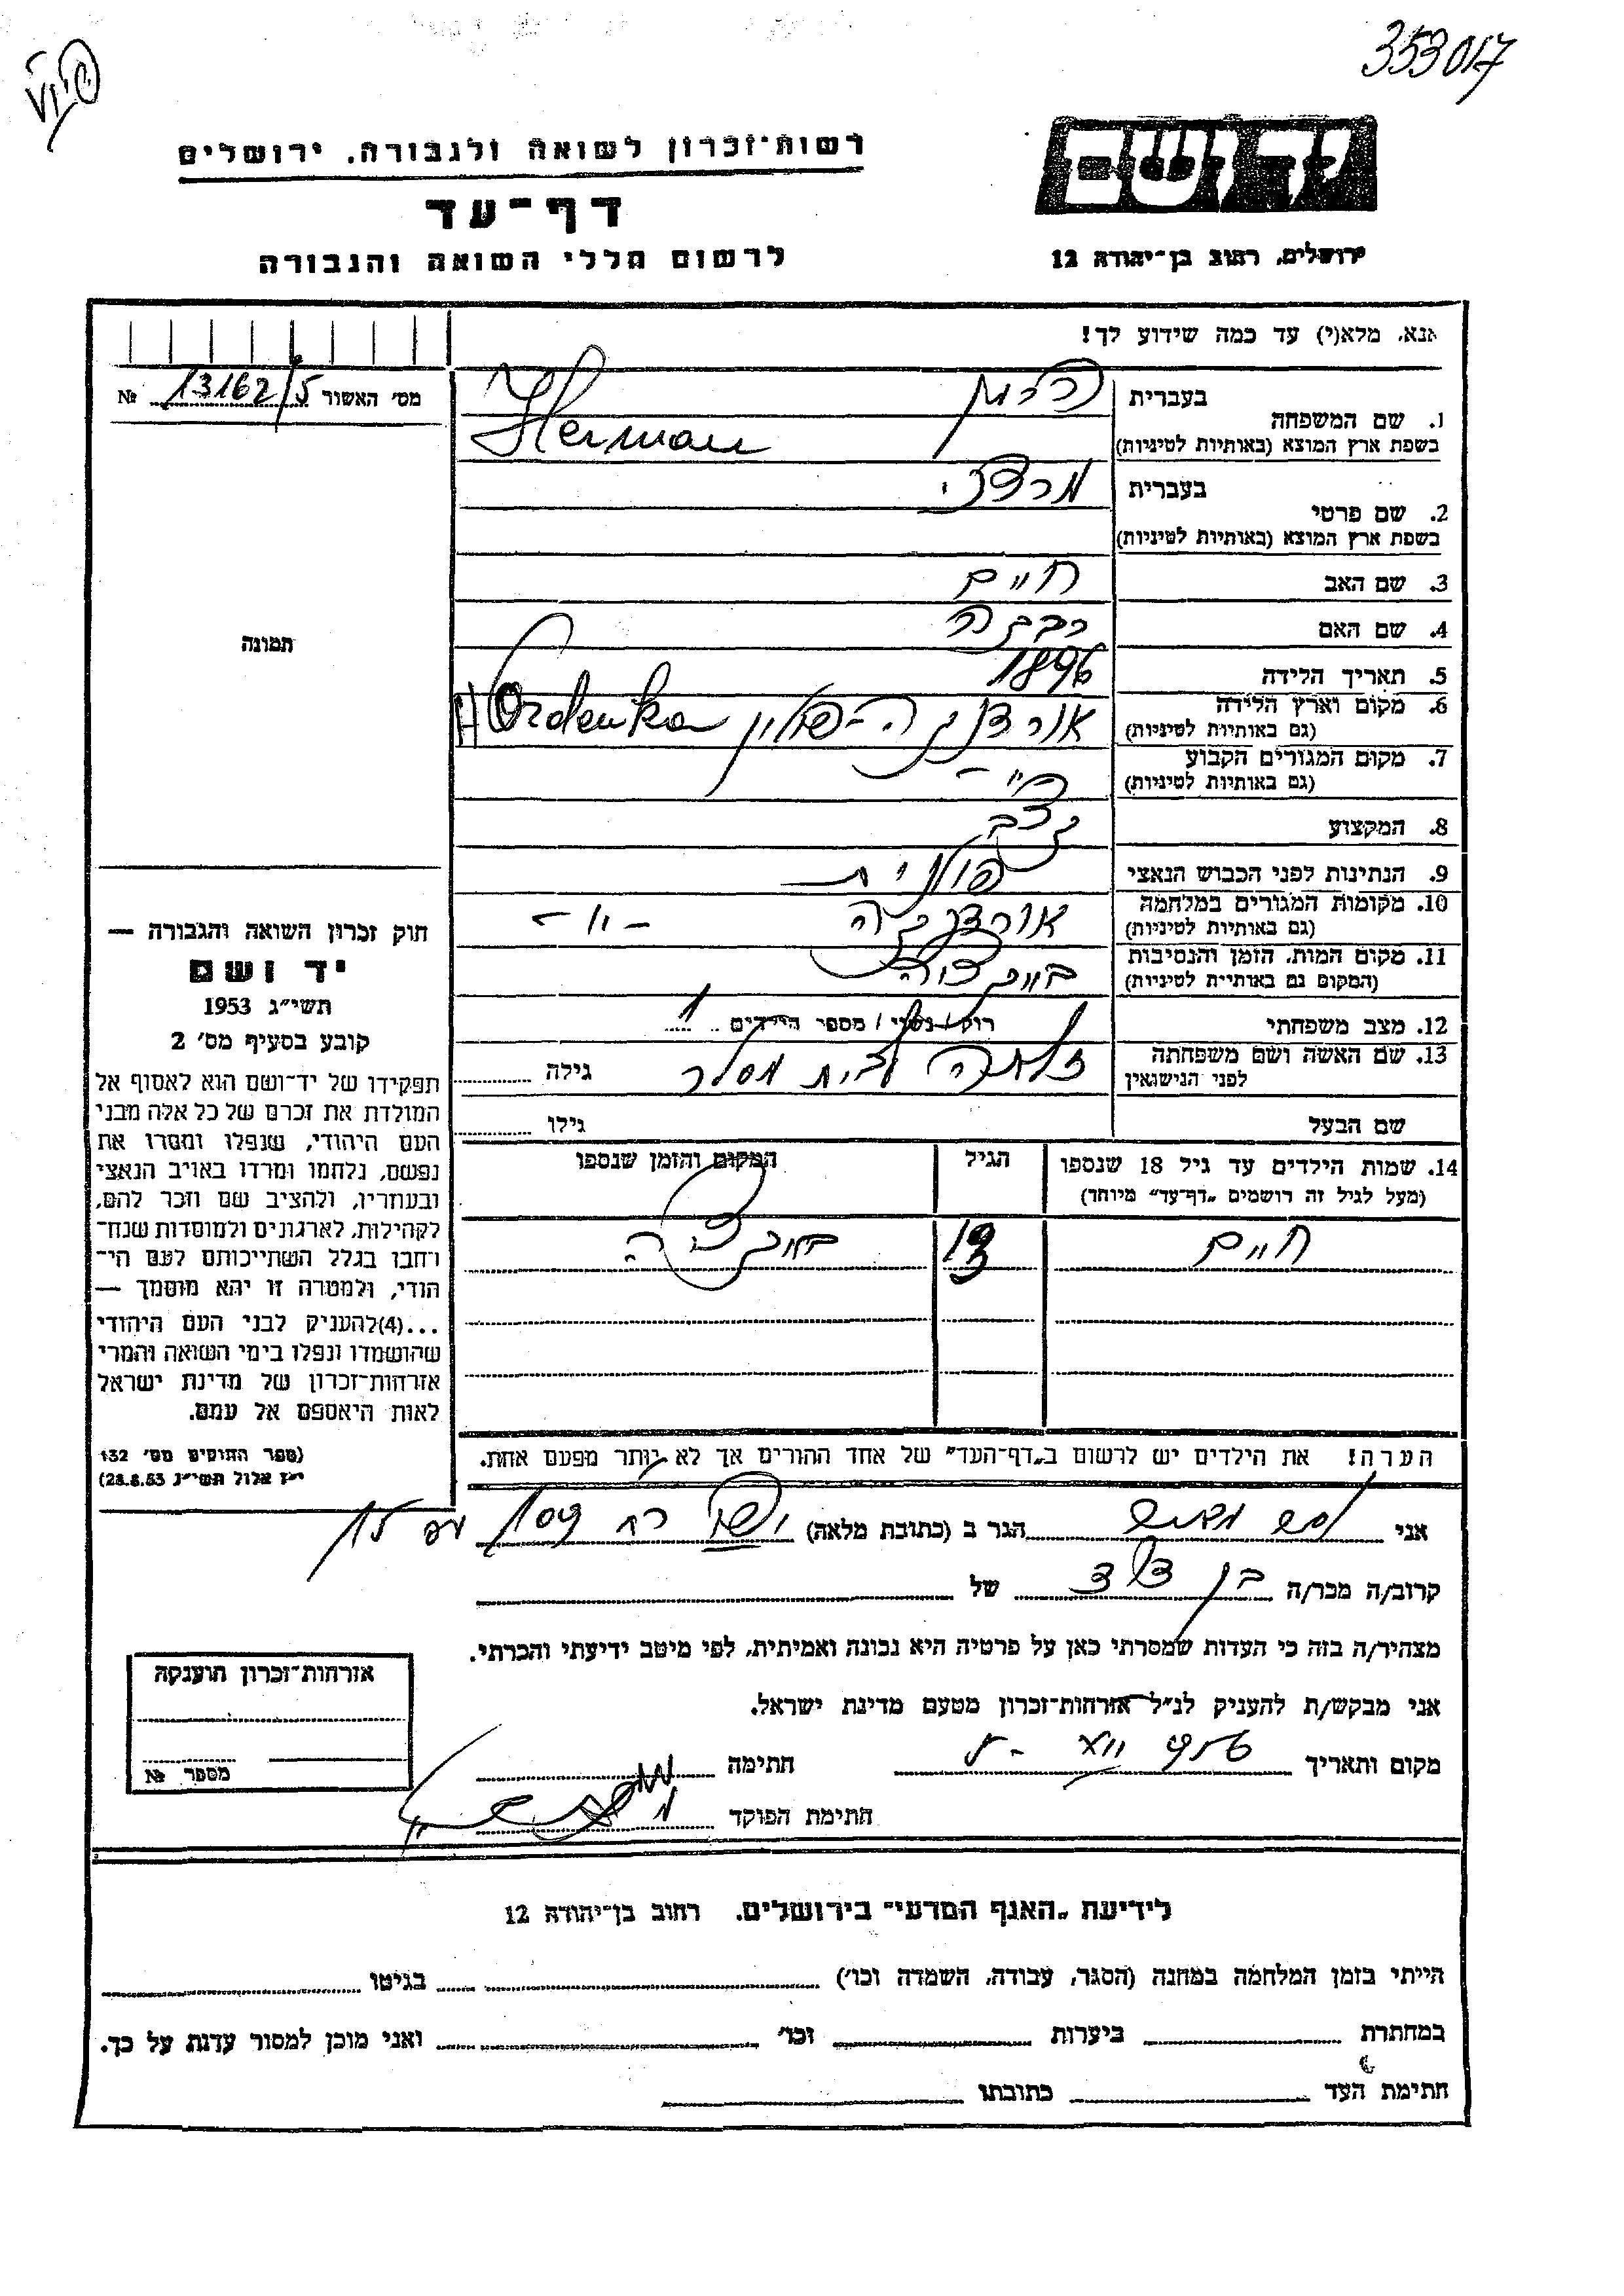 353017
רשות־זכרון לשואה ולגבורה, ירושלים
דף־עד
לרשום חללי השואה והגבורה
יד ושם
ירושלים, רחוב בן־יהודה 12
אנא, מלא(י) עד כמה שידוע לך!
מס' האשור 13162/5 №
1. שם המשפחה
בעברית הרמן
בשפת ארץ המוצא (באותיות לטיניות) Herman
2. שם פרטי
בעברית מרדכי
בשפת ארץ המוצא (באותיות לטיניות)
3. שם האב חיים
4. שם האם רבקה
5. תאריך הלידה 1896
6. מקום וארץ הלידה אורדנקה - פולין HOrdenka
(גם באותיות לטיניות)
7. מקום המגורים הקבוע
(גם באותיות לטיניות)
8. המקצוע
9. הנתינות לפני הכבוש הנאצי פולנית
10. מקומות המגורים במלחמה אורדנקה -"-
(גם באותיות לטיניות)
11. מקום המות, הזמן והנסיבות
(המקום גם באותיות לטיניות)
12. מצב משפחתי רווק / נשוי / מספר הילדים 1
13. שם האשה ושם משפחתה לבית גילה
לפני הנישואין
שם הבעל גילו
14. שמות הילדים עד גיל 18 שנספו הגיל המקום והזמן שנספו
(מעל לגיל זה רושמים "דף־עד" מיוחד)
חיים 13
הערה! את הילדים יש לרשום ב"דף־העד" של אחד ההורים אך לא יותר מפעם אחת.
תמונה
חוק זכרון השואה והגבורה —
יד ושם
תשי"ג 1953
קובע בסעיף מס' 2
תפקידו של יד־ושם הוא לאסוף אל
המולדת את זכרם של כל אלה מבני
העם היהודי, שנפלו ומסרו את
נפשם, נלחמו ומרדו באויב הנאצי
ובעוזריו, ולהציב שם וזכר להם,
לקהילות, לארגונים ולמוסדות שנח־
רחבו בגלל השתייכותם לעם הי־
הודי, ולמטרה זו יהא מוסמך —
...(4)להעניק לבני העם היהודי
שהושמדו ונפלו בימי השואה והמרי
אזרחות־זכרון של מדינת ישראל
לאות היאספם אל עמם.
(ספר החוקים מס' 132
י"ז אלול תשי"ג 28.8.53)
אני הגר ב (כתובת מלאה)
קרוב/ה מכר/ה בן דוד של
מצהיר/ה בזה כי העדות שמסרתי כאן על פרטיה היא נכונה ואמיתית, לפי מיטב ידיעתי והכרתי.
אני מבקש/ת להעניק לנ"ל אזרחות־זכרון מטעם מדינת ישראל.
מקום ותאריך חתימה
חתימת הפוקד
אזרחות־זכרון הוענקה
מספר №
לידיעת "האגף המדעי" בירושלים, רחוב בן־יהודה 12
הייתי בזמן המלחמה במחנה (הסגר, עבודה, השמדה וכו') בגיטו
במחתרת ביערות וכו' ואני מוכן למסור עדות על כך.
חתימת העד כתובתו